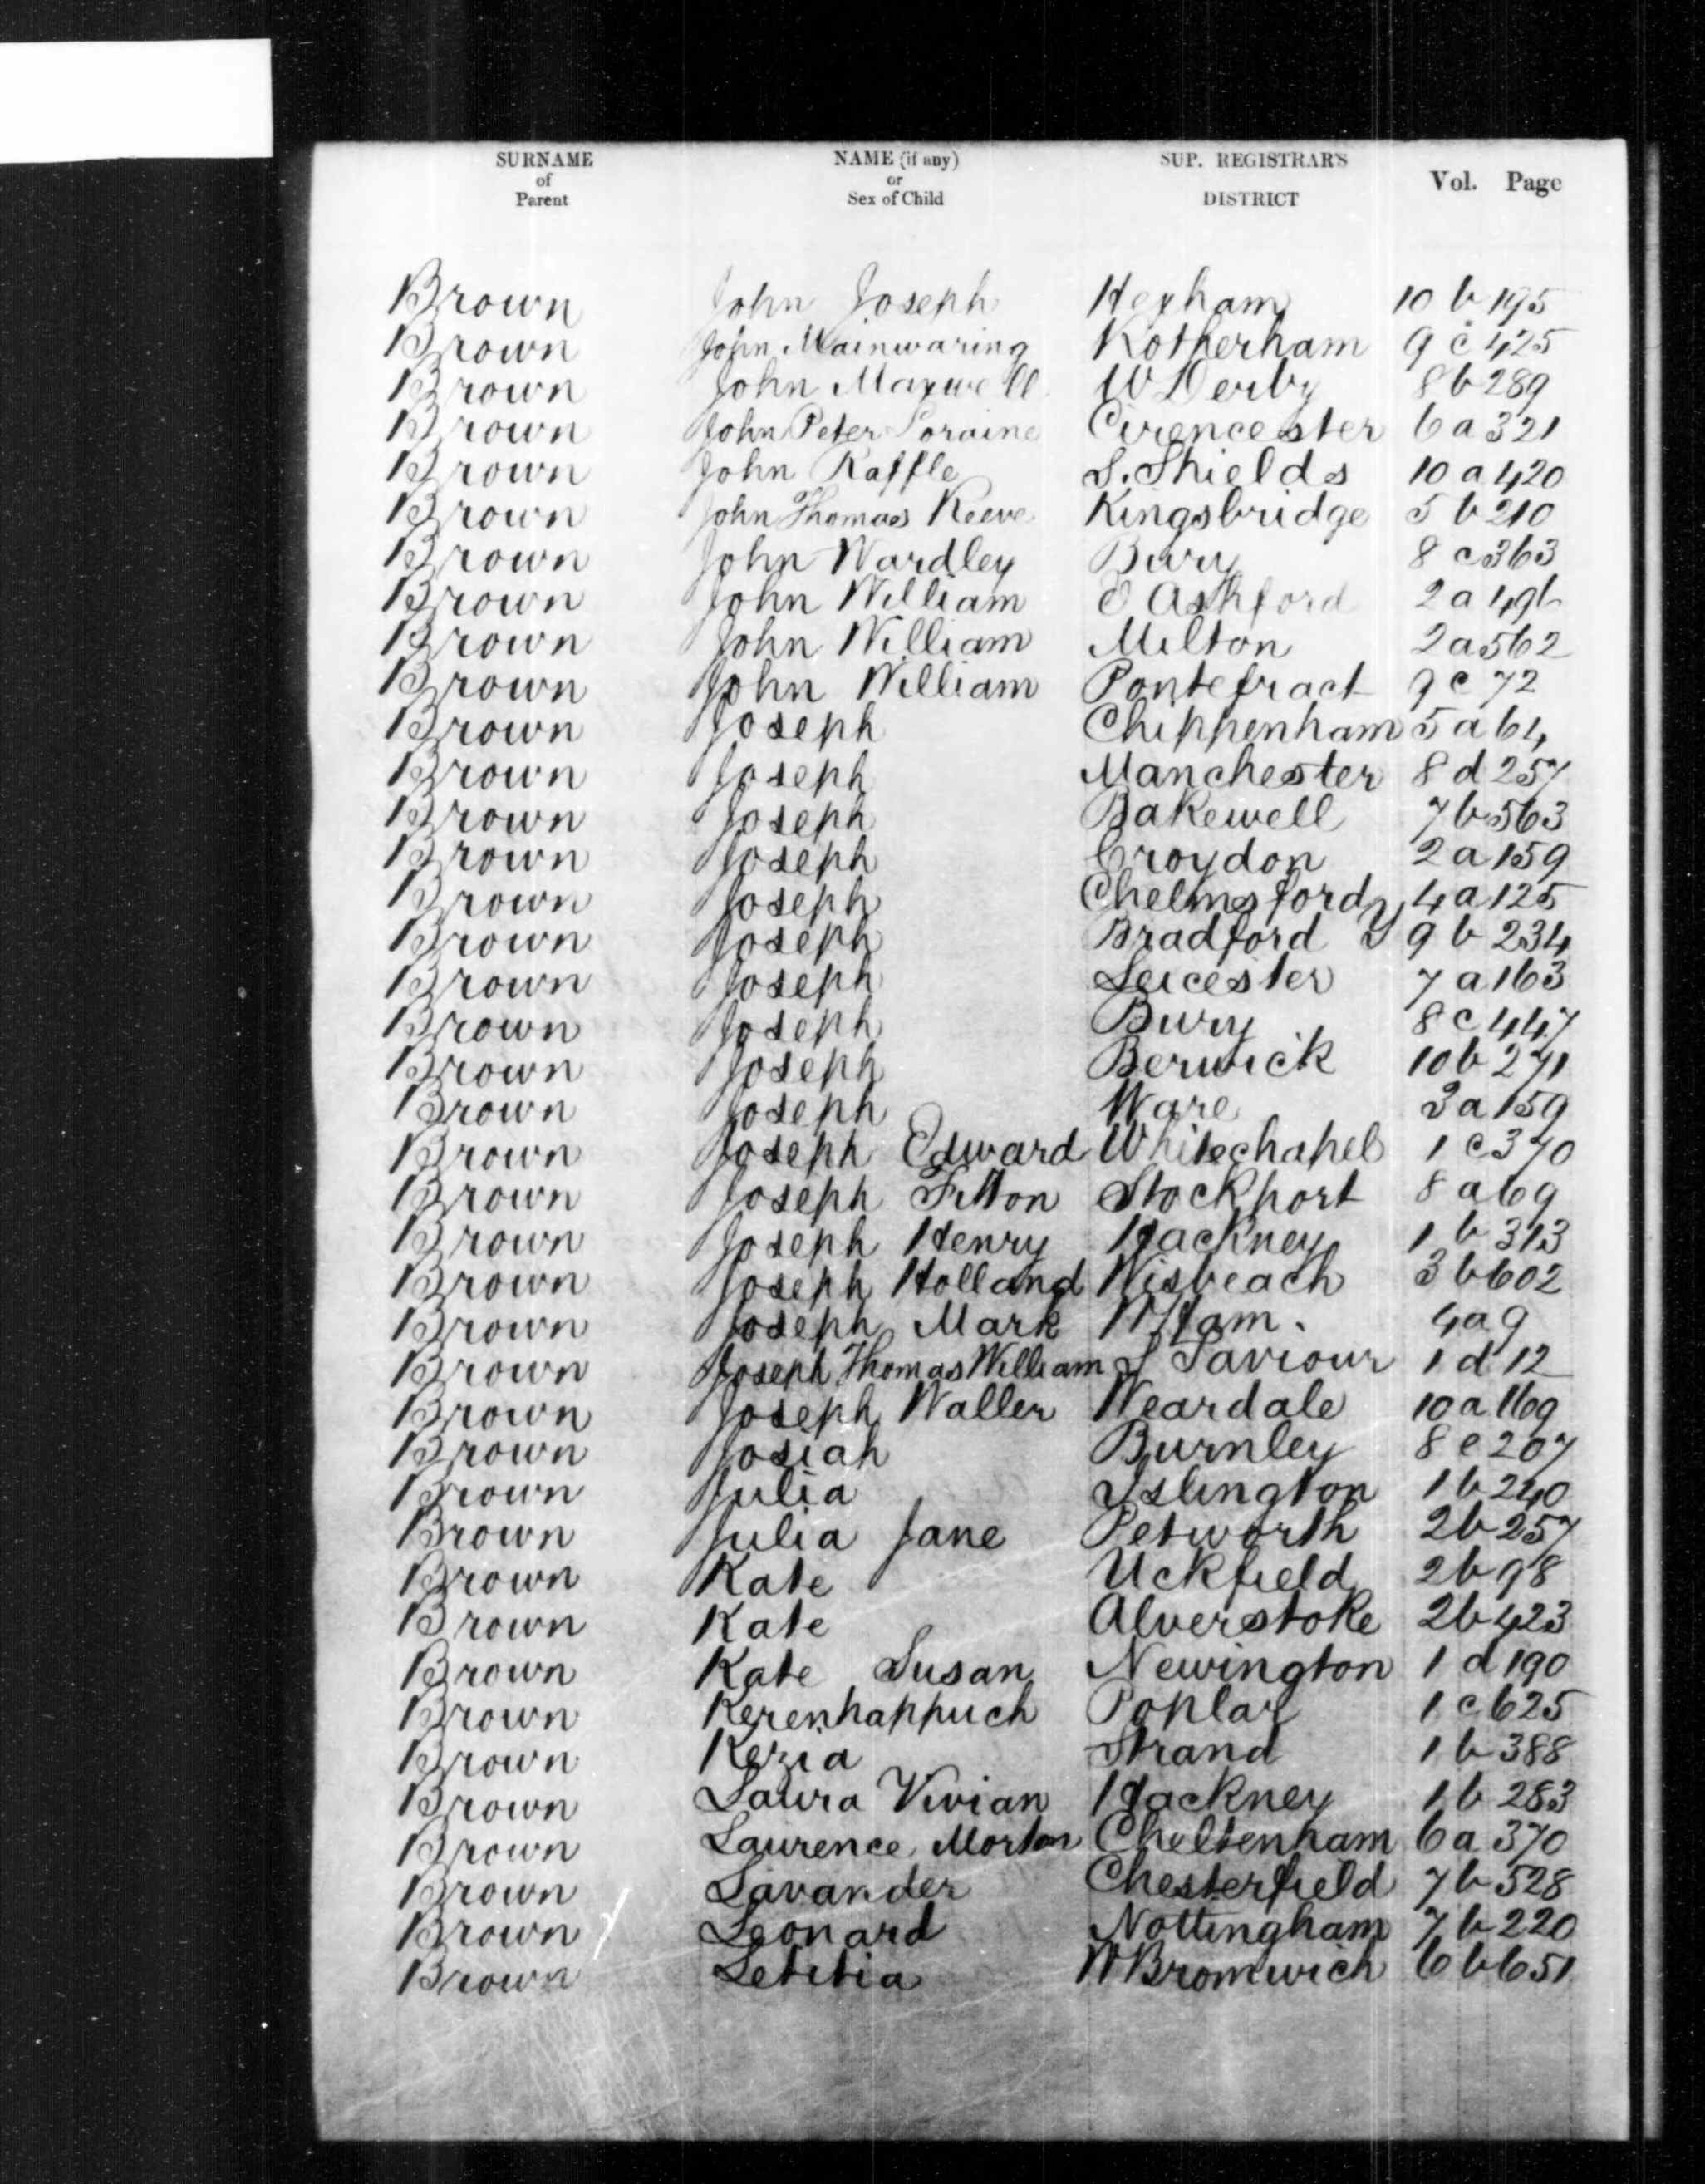 SURNAME of Parent NAME (if any) or Sex of Child SUP. REGISTRAR'S DISTRICT Vol. Page
Brown John Joseph Hexham 10 b 195
Brown John Mainwaring Rotherham 9 c 425
Brown John Maxwell W Derby 8 b 289
Brown John Peter Loraine Cirencester 6 a 321
Brown John Raffle S. Shields 10 a 420
Brown John Thomas Reeve Kingsbridge 5 b 210
Brown John Wardley Bury 8 c 363
Brown John William E Ashford 2 a
Brown John William Milton 2 a 562
Brown John William Pontefract 9 c 72
Brown Joseph Chippenham 5 a 64
Brown Joseph Manchester 8 d 257
Brown Joseph Bakewell 7 b 563
Brown Joseph Croydon 2 a 159
Brown Joseph Chelmsford 4 a 125
Brown Joseph Bradford Y 9 b 234
Brown Joseph Leicester 7 a 163
Brown Joseph Bury 8 c 447
Brown Joseph Berwick 10 b 271
Brown Joseph Ware 3 a 159
Brown Joseph Edward Whitechapel 1 c 370
Brown Joseph Fitton Stockport 8 a 69
Brown Joseph Henry Hackney 1 b 313
Brown Joseph Holland Wisbeach 3 b 602
Brown Joseph Mark W Ham. 4 a 9
Brown Joseph Thomas William S Saviour 1 d 12
Brown Joseph Waller Weardale 10 a 169
Brown Josiah Burnley 8 e 207
Brown Julia Islington 1 b 240
Brown Julia Jane Petworth 2 b 257
Brown Kate Uckfield 2 b 98
Brown Kate Alverstoke 2 b 423
Brown Kate Susan Newington 1 d 190
Brown Kerenhappuch Poplar 1 c 625
Brown Kezia Strand 1 b 388
Brown Laura Vivian Hackney 1 b 283
Brown Laurence Morton Cheltenham 6 a 370
Brown Lavander Chesterfield 7 b 528
Brown Leonard Nottingham 7 b 220
Brown Letitia W Bromwich 6 b 651